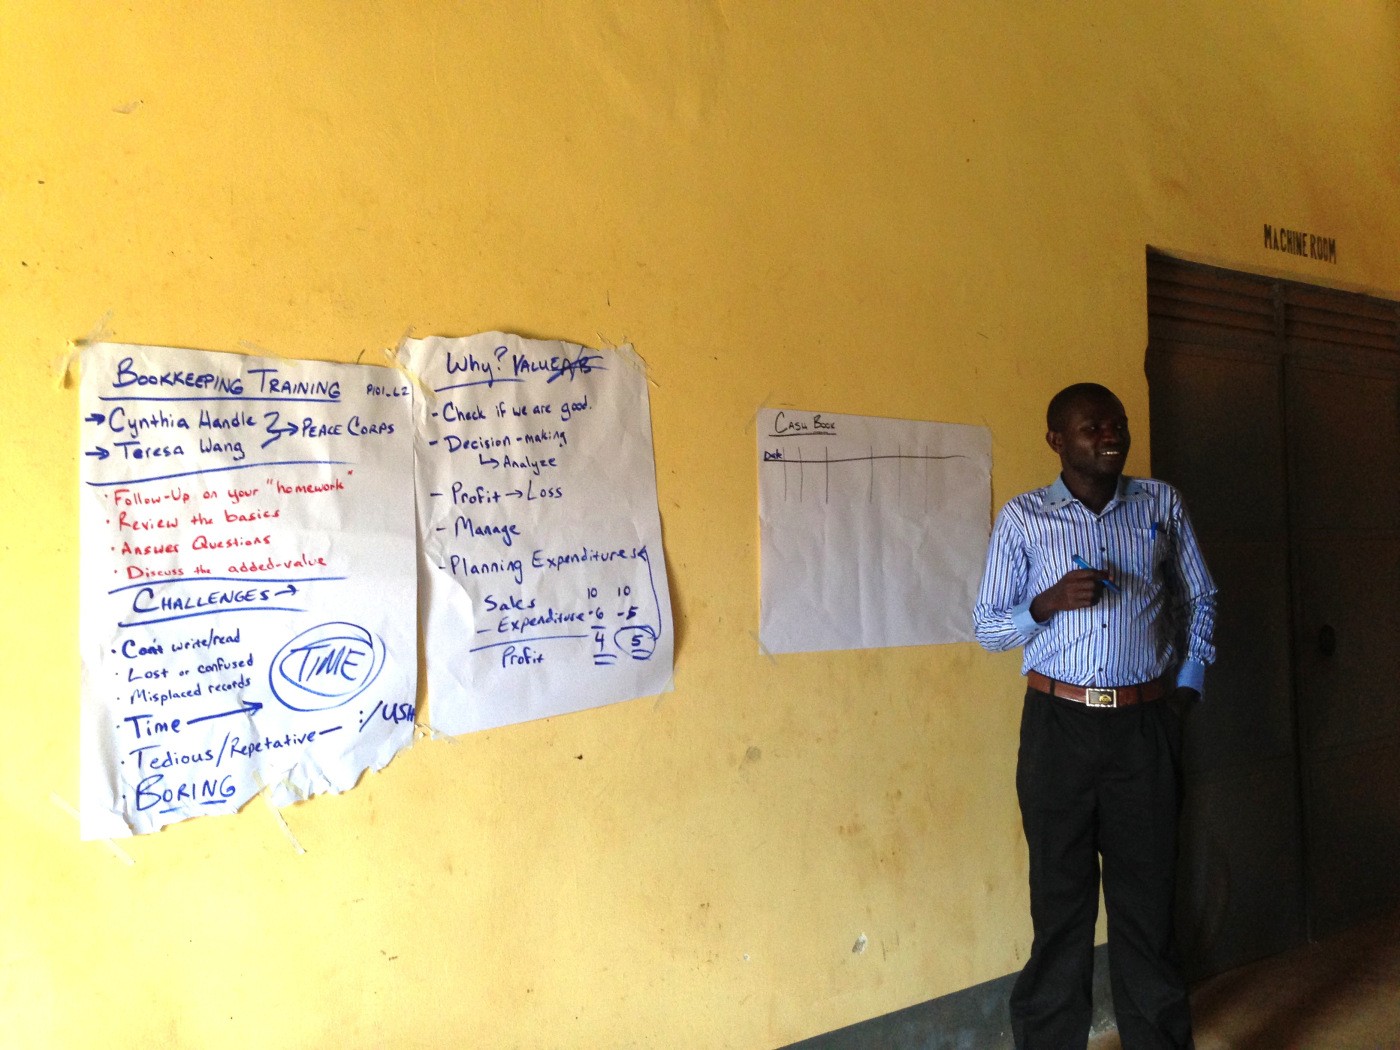 BOOKKEEPING TRAINING
→ Cynthia Handle
→ Teresa Wang
→ PEACE CORPS
· Follow-Up on your "homework"
· Review the basics
· Answer Questions
· Discuss the added-value
CHALLENGES →
· Can't write/read
· Lost or confused
· Misplaced records
· Time →
TIME
· Tedious/Repetative — :/
· BORING
Why? VALUE
- Check if we are good.
- Decision-making
↳ Analyze
- Profit → Loss
- Manage
- Planning Expenditures
Sales 10 10
- Expenditure -6 -5
Profit 4 5
CASH BOOK
Date
MACHINE ROOM